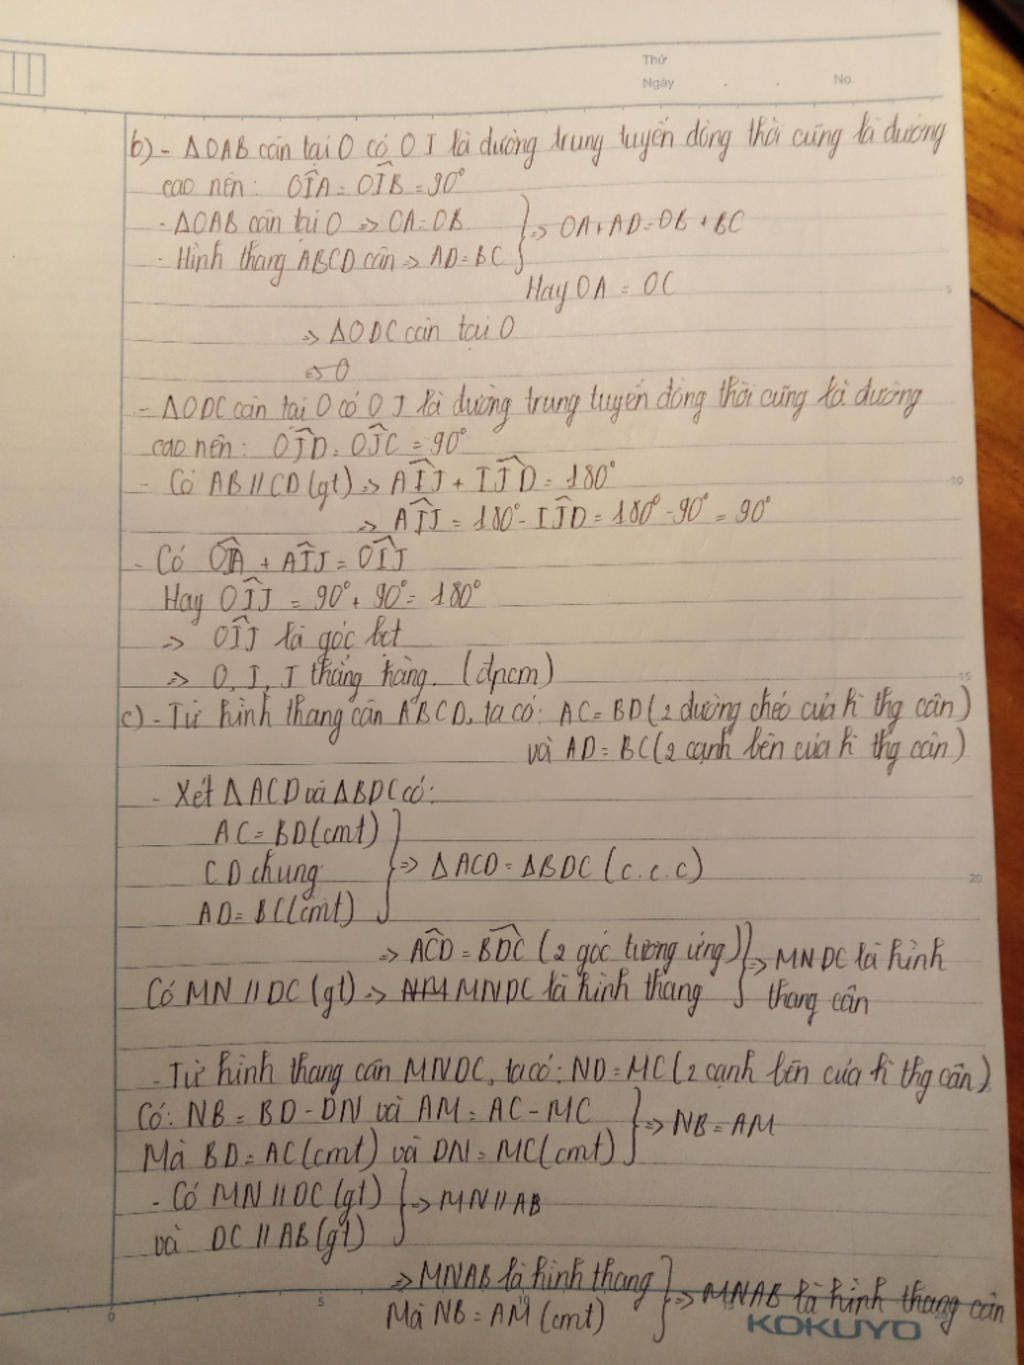 Thứ
Ngày . . No.
b) - ΔOAB cân tại O có OI là đường trung tuyến đồng thời cũng là đường
cao nên: OÎA = OÎB = 90°
- ΔOAB cân tại O => OA = OB } => OA + AD = OB + BC
- Hình thang ABCD cân => AD = BC
Hay OA = OC
=> ΔODC cân tại O
=> O
- ΔODC cân tại O có OJ là đường trung tuyến đồng thời cũng là đường
cao nên: OĴD = OĴC = 90°
- Có AB // CD (gt) => AÎJ + IĴD = 180°
=> AÎJ = 180° - IĴD = 180° - 90° = 90°
- Có OÎA + AÎJ = OÎJ
Hay OÎJ = 90° + 90° = 180°
=> OÎJ là góc bẹt
=> O, I, J thẳng hàng. (đpcm)
c) - Từ hình thang cân ABCD, ta có: AC = BD (2 đường chéo của h thg cân)
và AD = BC (2 cạnh bên của h thg cân)
- Xét ΔACD và ΔBDC có:
AC = BD (cmt)
CD chung } => ΔACD = ΔBDC (c.c.c)
AD = BC (cmt)
=> AĈD = BD̂C (2 góc tương ứng) } => MNDC là hình
Có MN // DC (gt) => NM MNDC là hình thang thang cân
- Từ hình thang cân MNDC, ta có: ND = MC (2 cạnh bên của h thg cân)
Có: NB = BD - DN và AM = AC - MC } => NB = AM
Mà BD = AC (cmt) và DN = MC (cmt)
- Có MN // DC (gt) } => MN // AB
và DC // AB (gt)
=> MNAB là hình thang } => MNAB là hình thang cân
Mà NB = AM (cmt)
0 5 10
KOKUYO